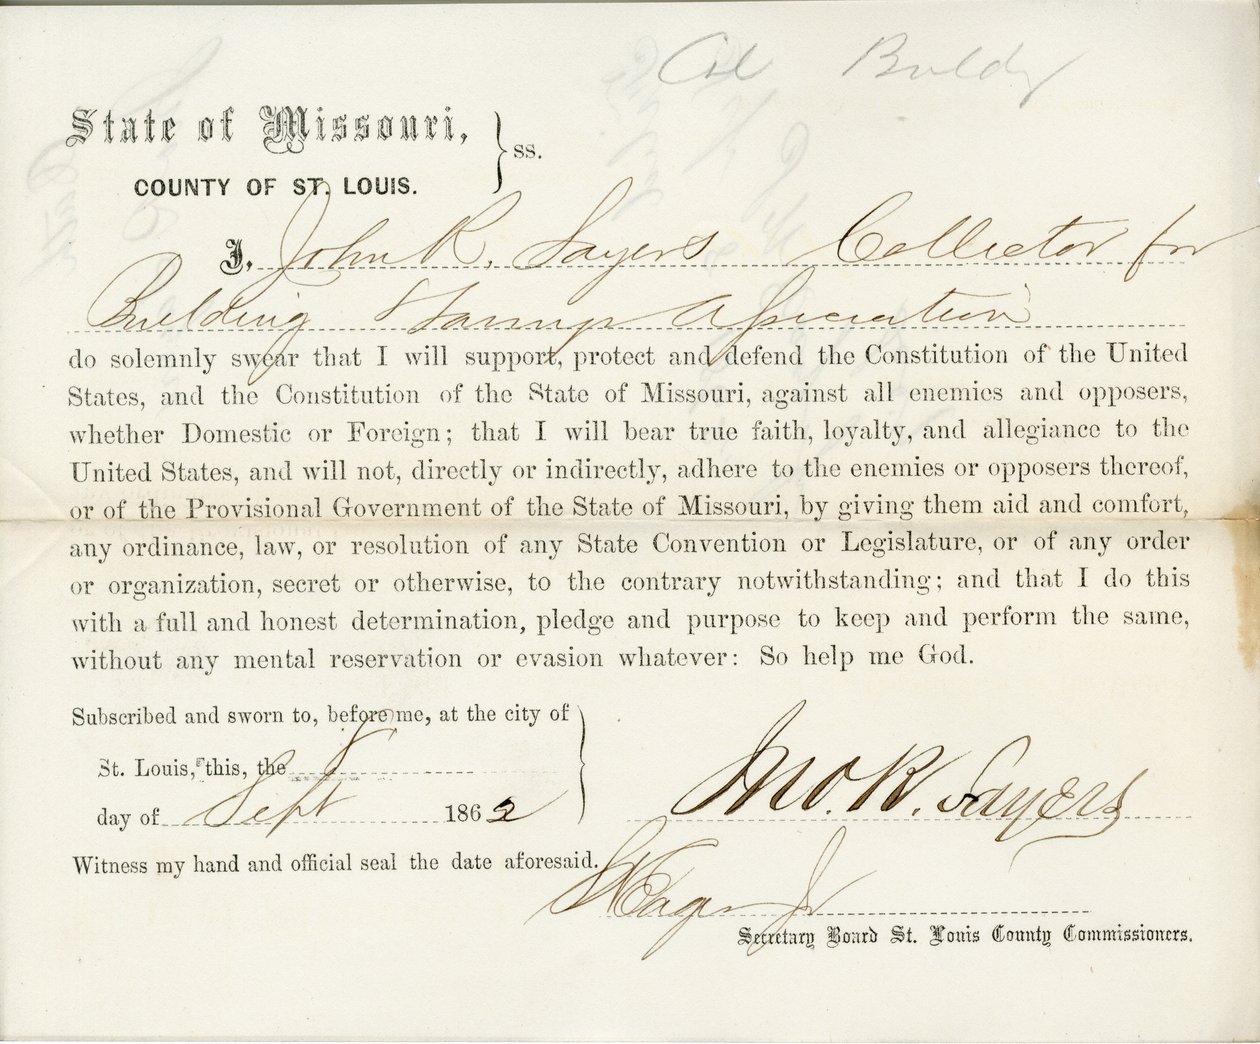 Col Buldg
State of Missouri, } ss.
COUNTY OF ST. LOUIS.
I, John R. Sayers Collector for
Building & Savings Association
do solemnly swear that I will support, protect and defend the Constitution of the United
States, and the Constitution of the State of Missouri, against all enemies and opposers,
whether Domestic or Foreign; that I will bear true faith, loyalty, and allegiance to the
United States, and will not, directly or indirectly, adhere to the enemies or opposers thereof,
or of the Provisional Government of the State of Missouri, by giving them aid and comfort,
any ordinance, law, or resolution of any State Convention or Legislature, or of any order
or organization, secret or otherwise, to the contrary notwithstanding; and that I do this
with a full and honest determination, pledge and purpose to keep and perform the same,
without any mental reservation or evasion whatever: So help me God.
Subscribed and sworn to, before me, at the city of
St. Louis, this, the 8
day of Sept 1862
Jno. R. Sayers
Witness my hand and official seal the date aforesaid.
Jr
Secretary Board St. Louis County Commissioners.